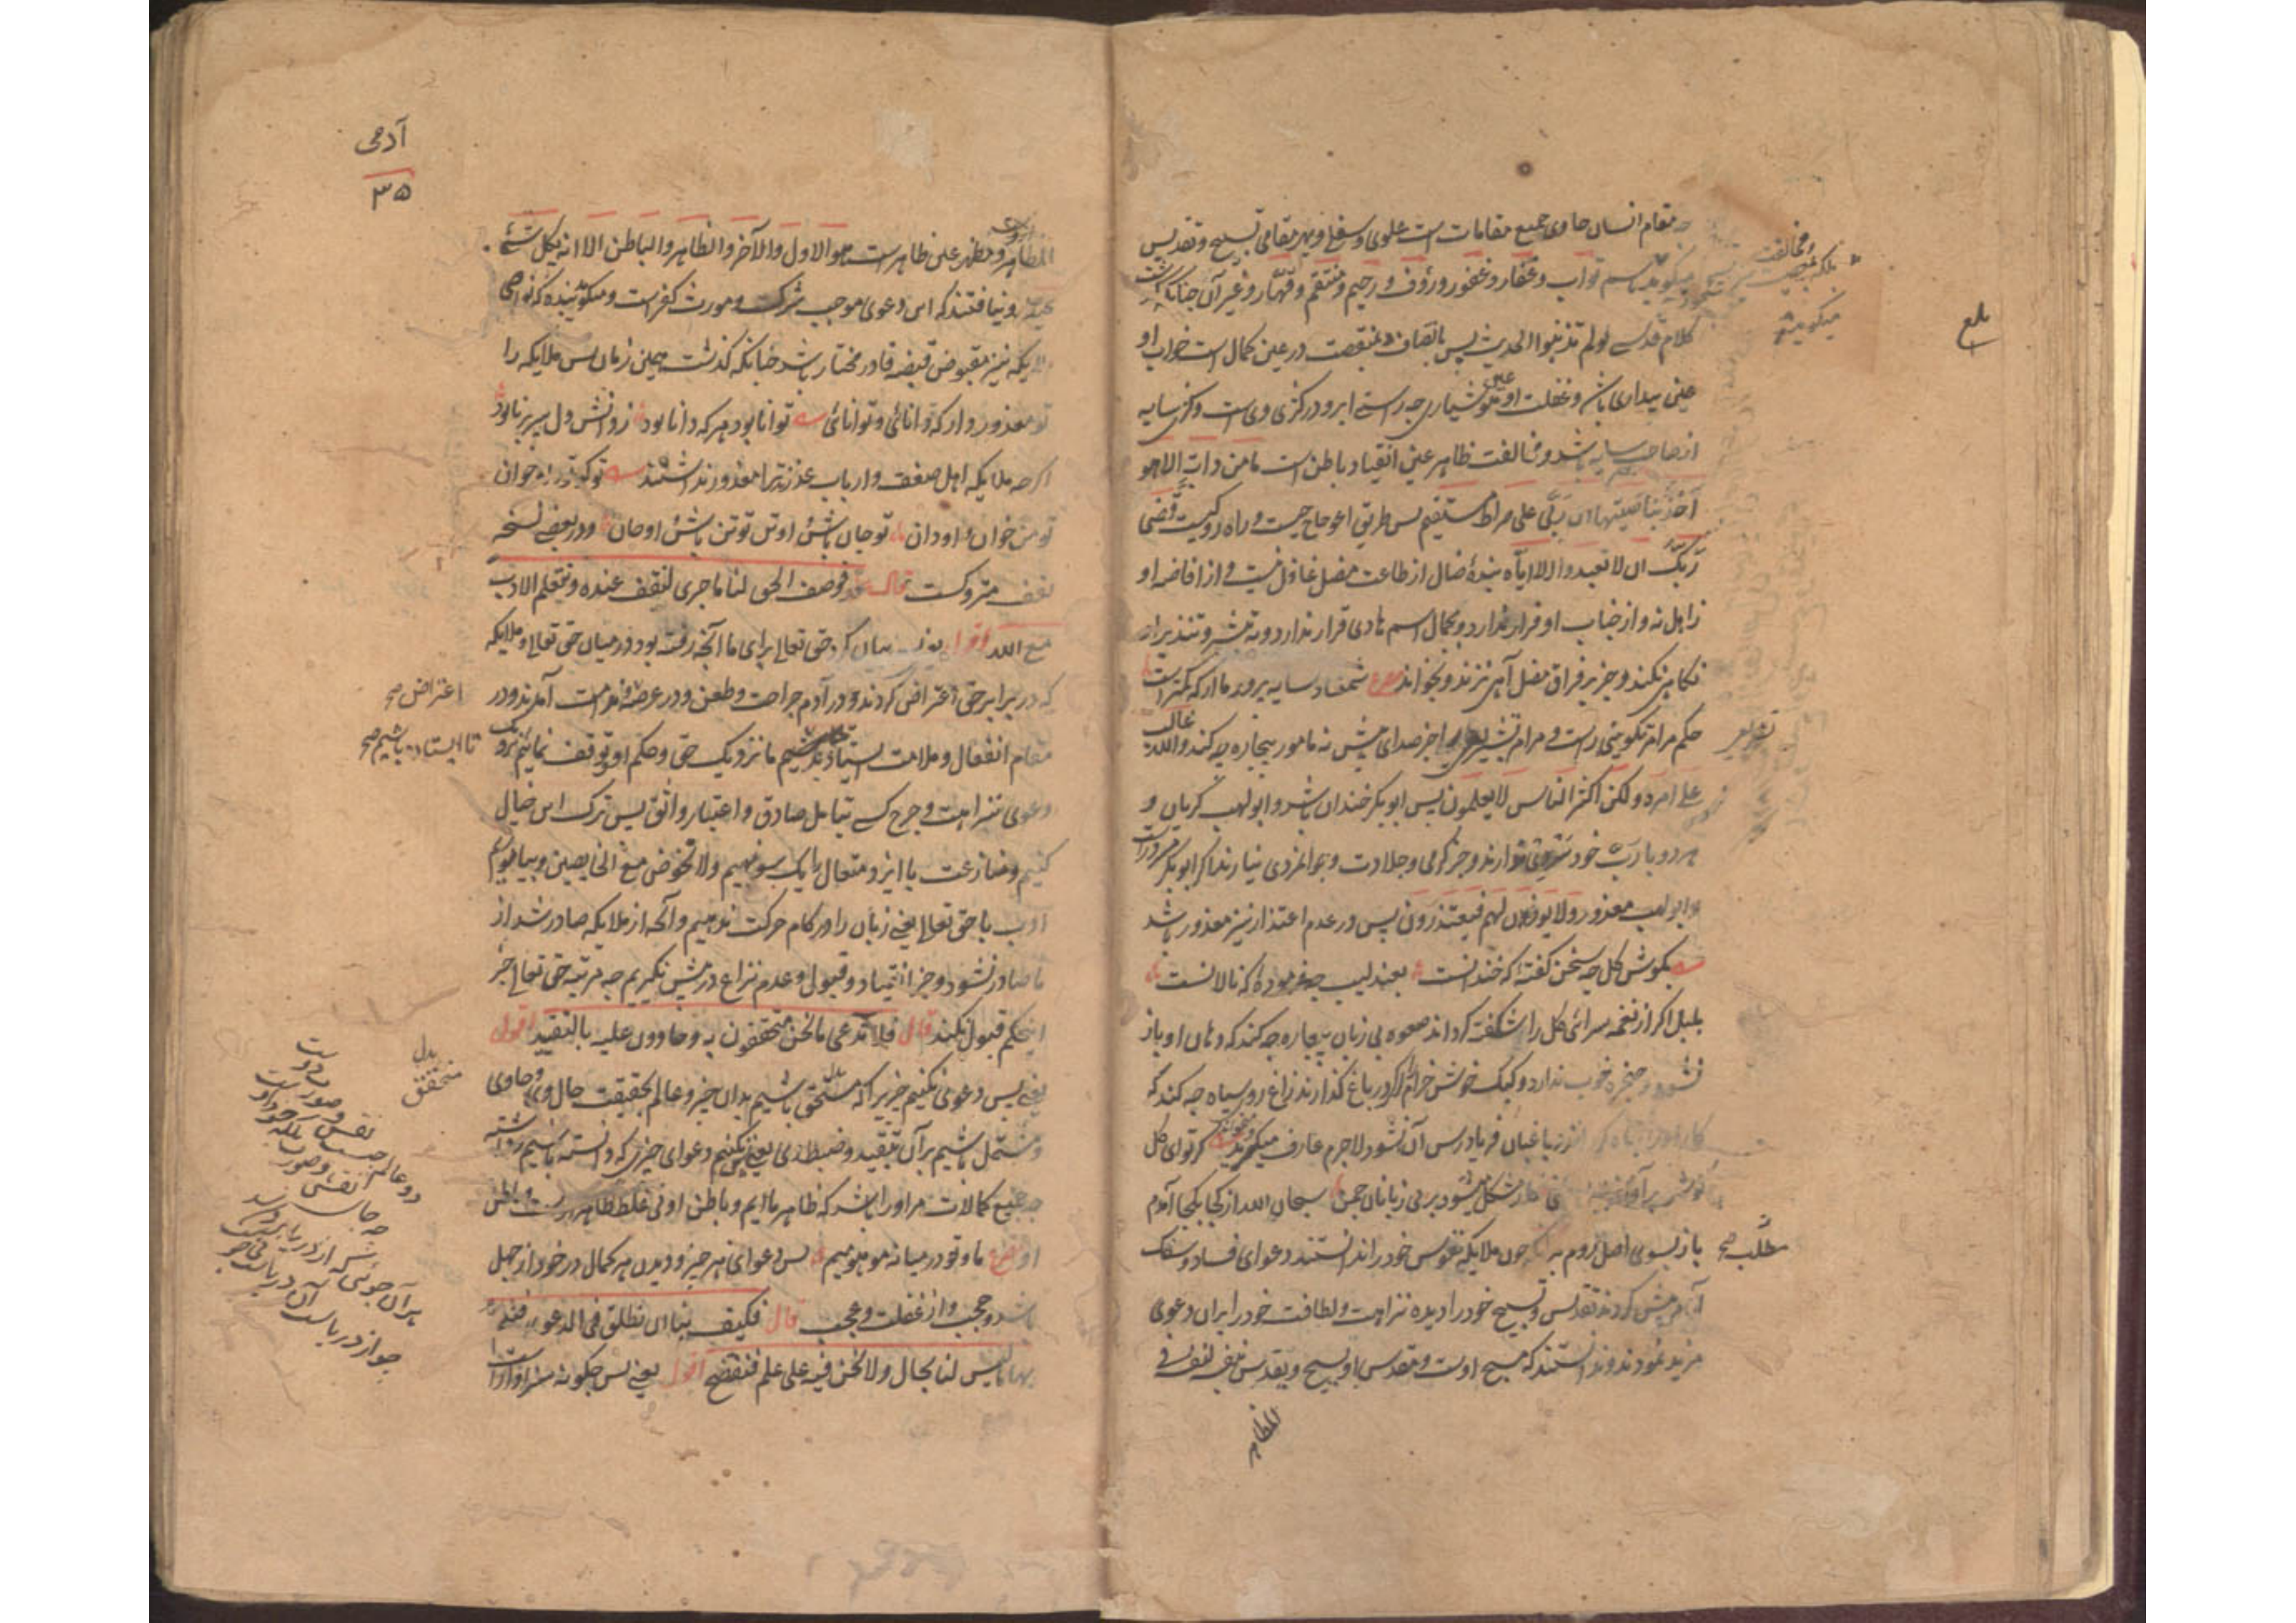 مقام انسان حاوی جمیع مقامات است علوی و سفلی و بهر مقامی تسبیح و تقدیس
تواب و غفار و غفور و رؤف و رحیم و منتقم و قهار و غیر آن چنانکه
کلام قدسی لولم تذنبوا الحدیث پس نقصان و منقصت در عین کمال است خواب او
عین بیداری باشد و غفلت او عین هوشیاری چه راستی ابرو در کژی وی است و کژی سایه
از صاحب سایه باشد و مخالفت ظاهر عین انقیاد باطن است ما من دابة الا هو
آخذ بناصیتها ان ربی علی صراط مستقیم پس طریق اعوجاج چیست و راه رو کیست و قضی
ربک ان لا تعبدوا الا ایاه بندۀ ضال از طاعت مضل غافل نیست و از افاضه او
زاهل نه و از جناب او فرار ندارد و بجمال اسم هادی قرار ندارد و به تبشیر و تنذیر
نکاهی نکند و جز بر فراق مضل آهی نزند و نخواند مصرع شمشاد سایه پرور ما از که کمتر است
حکم مر امر تکوینی راست و مر امر تشریعی را جز صدای بیش نه مامور بیچاره چه کند والله غالب
علی امره ولکن اکثر الناس لا یعلمون پس ابو بکر خندان باشد و ابو لهب گریان و
هر دو با رب خود دارند و جز گرمی و جلادت و جوانمردی نیارند اگر ابو بکر
و ابو لهب معذور و لا یؤذن لهم فیعتذرون پس در عدم اعتذار نیز معذور باشد
بگوش گل چه سخن گفته که خندانست بعندلیب چه فرمودۀ که نالانست
بلبل اگر از نغمه سرائی گل را شگفته گرداند صعوه بی زبان بیچاره چه کند که دهان او باز
نشود و حنجره خوب ندارد و کبک خوش خرام اگر در باغ گذارند زاغ رو سیاه چه کند که
باغبان فریادرس آن نشود لاجرم عارف میگوید گر تو ای گل
مشکل میشود بر بی زبانان چمن سبحان الله از کجا بکجا آمدم
باز بسوی اصل روم چون ملایکه نفوس خود را ندانستند دعوای فساد و سفک
پیش کردند تقدیس و تسبیح خود را دیده نزاهت و لطافت خود را بران دعوی
مزید نمودند و ندانستند که مسبح اوست و مقدس او یسبح و یقدس نفسه لنفسه فی
المظاهر
و مخالفت
بلکه
میگویند
بلغ
تشریعی
مطلب صح
آدمی
۳۵
المظاهر و مظهر عین ظاهر است هو الاول والآخر والظاهر والباطن الا انه بکل شئ
محیط و نیافتند که این دعوی موجب شرکت و مورث کفر است و میگویند که نواصی
ملایکه نیز مقبوض قبضه قادر مختار باشد چنانکه گذشت همین زمان پس ملایکه را
تو معذور دار که دانائی و توانائی توانا بود هر که دانا بود ز دانش دل پیر برنا بود
اگرچه ملایکه اهل صفت و ارباب عذر ترا معذور نداشتند
تو جان باشی او تن تو تن باشی او جان و در بعضی نسخه
متروکست قال فوصف الحق لنا ما جری لنقف عنده و نتعلم الادب
مع الله اقول بیان کرد حق تعالی برای ما آنچه رفته بود در میان حق تعالی و ملایکه
که در برابر حق اعتراض کردند و در آدم جراحت و طعن و در عرضۀ ندامت آمدند و در
مقام انفعال و ملامت ایستادند باشیم ما نزدیک حق و حکم او و توقف نمائیم نزدیک
دعوی نزاهت و جرح کسی بتامل صادق و اعتبار واثق پس ترک این خیال
کنیم و منازعت با ایزد متعال را یک سو نهیم ولا نخوض مع الخایضین و بیاموزیم
ادب با حق تعالی یعنی زبان را در کام حرکت ندهیم و آنچه از ملایکه صادر شد از
ما صادر نشود و جز انقیاد و قبول و عدم نزاع در پیش نگیریم چه مرتبه حق تعالی جز
این حکم قبول نکند قال فلا ندعی ما نحن متحققون به و حاوون علیه بالتقیید اقول
یعنی پس دعوی نکنیم چیزیرا که متحقق باشیم بدان چیز و عالم بحقیقت حال وی و حاوی
و مشتمل باشیم بر آن بتقیید و ضبط وی یعنی پس نکنیم دعوای چیزی که دانسته باشیم
چه جمیع کمالات مر او را باشد که ظاهر مائیم و باطن او نی غلط ظاهر اوست و باطن
او مصرع ما و تو در میانه موهومیم پس دعوای هر چیز و دیدن هر کمال در خود از جهل
باشد و حجب و از غفلت و عجب قال فکیف بنا ان نطلق فی الدعوی فنعم
بها ما لیس لنا بحال ولا نحن فیه علی علم فنفتضح اقول یعنی پس چگونه سزاوار است
اعتراض صح
تا ایستاده باشیم صح
بدل
متحقق
دو عالم چیست نقش و صورت دوست
چه جای نقش و صورت بلکه خود اوست
بر آن جوئی که از دریا برون شد
چو از دریاست آن دریاست نی جو